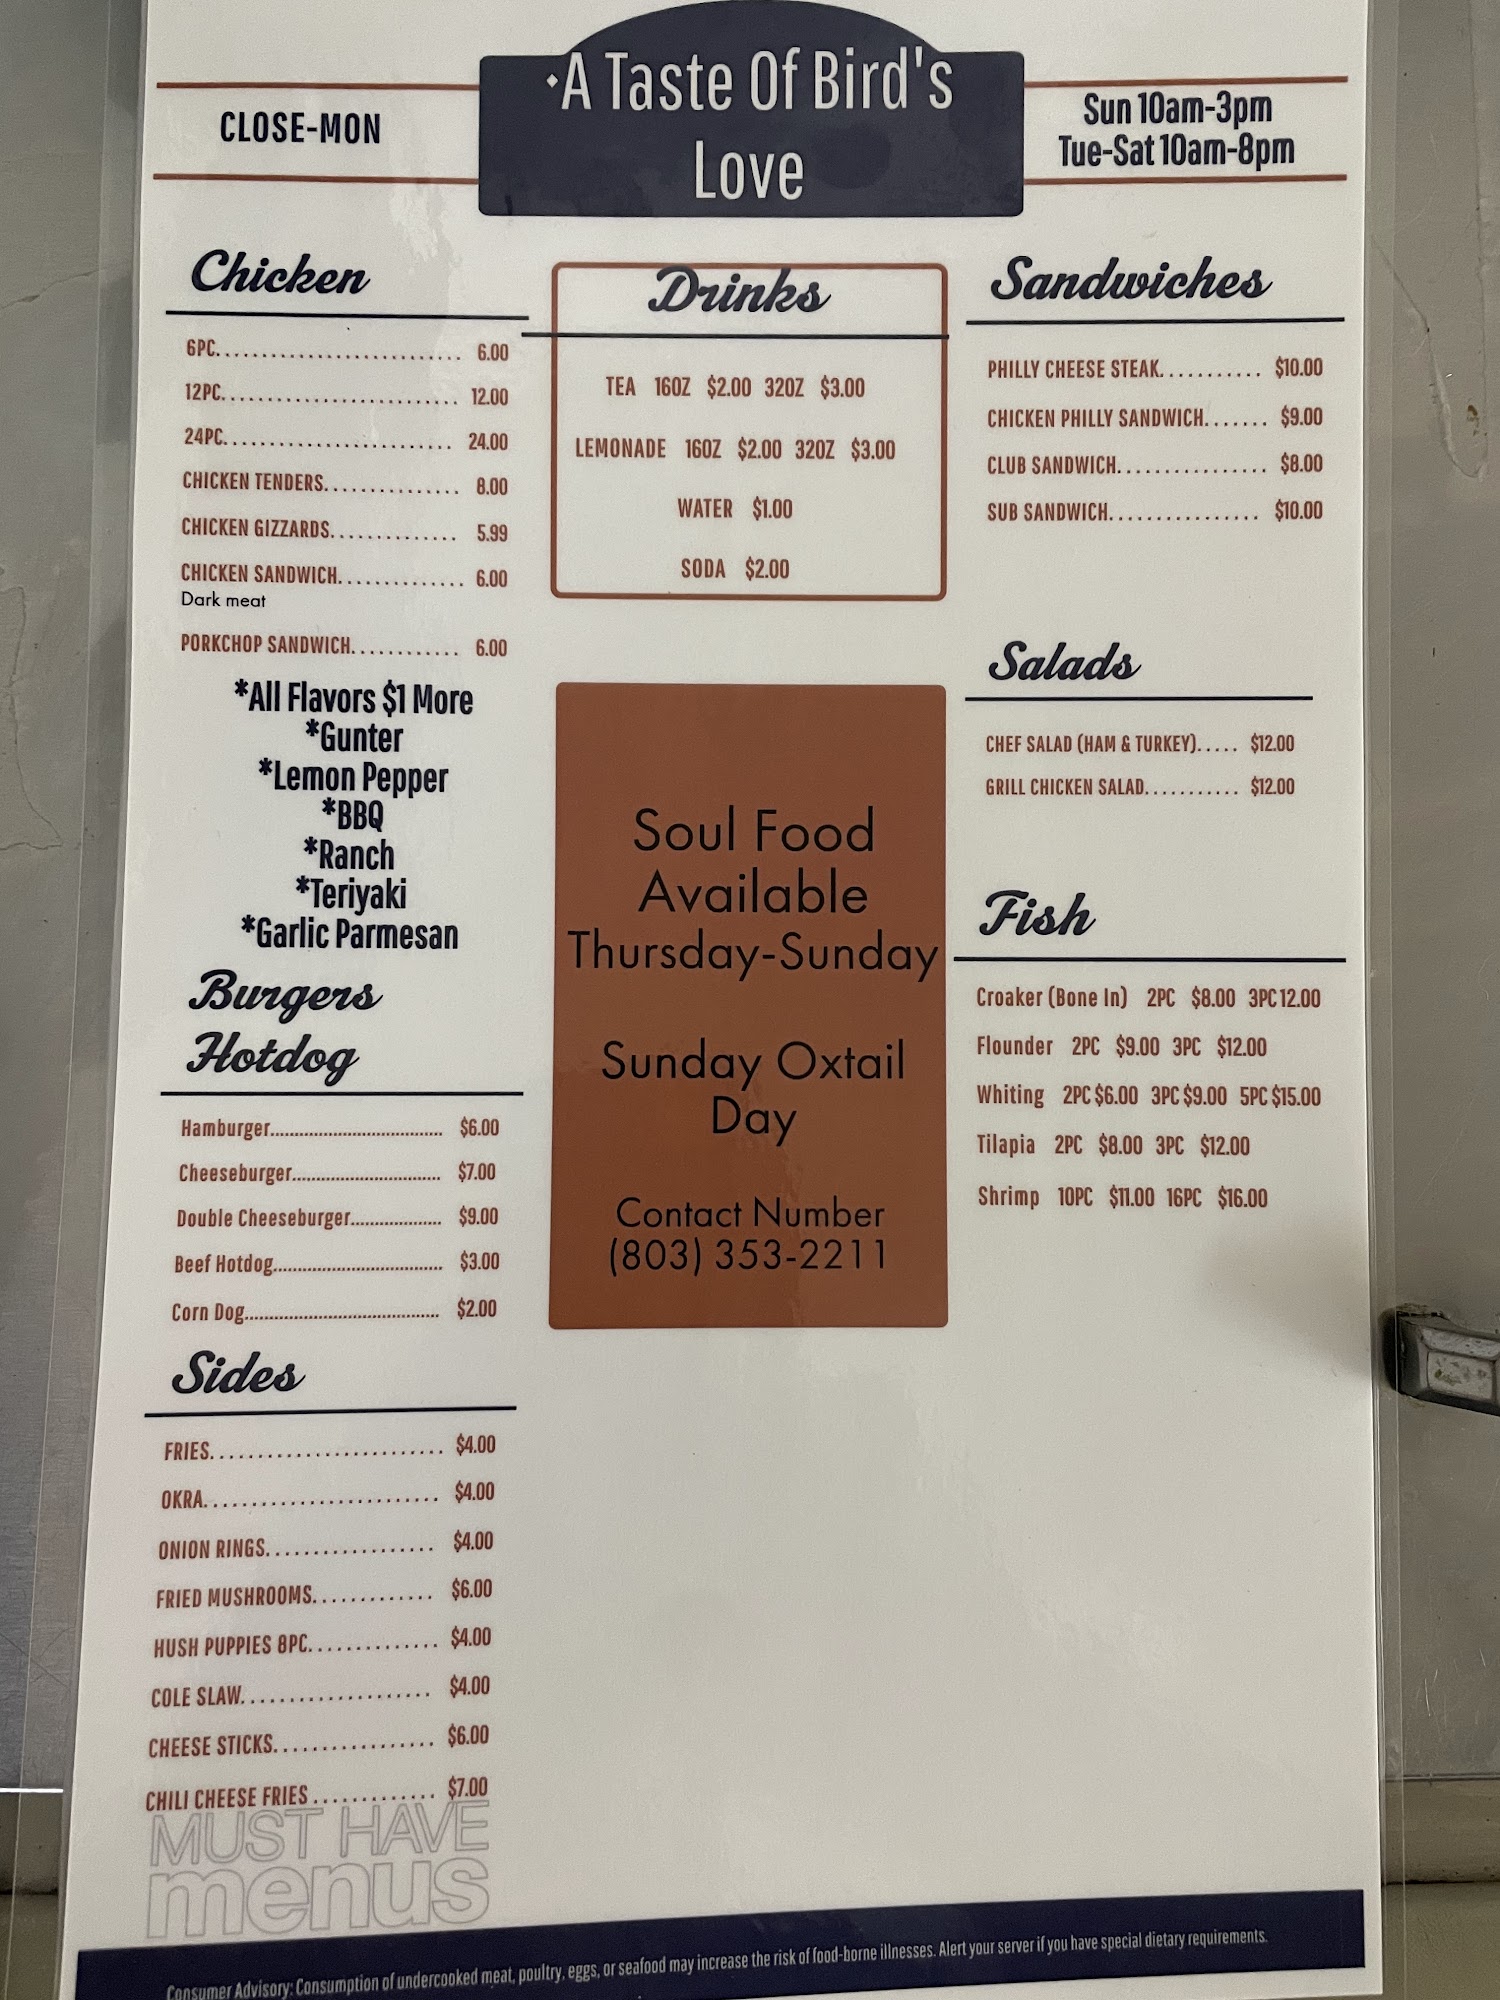 ·A Taste Of Bird's
Love
CLOSE-MON
Sun 10am-3pm
Tue-Sat 10am-8pm
Chicken
6PC........................... 6.00
12PC.......................... 12.00
24PC......................... 24.00
CHICKEN TENDERS............... 8.00
CHICKEN GIZZARDS.............. 5.99
CHICKEN SANDWICH.............. 6.00
Dark meat
PORKCHOP SANDWICH............ 6.00
*All Flavors $1 More
*Gunter
*Lemon Pepper
*BBQ
*Ranch
*Teriyaki
*Garlic Parmesan
Burgers
Hotdog
Hamburger........................................ $6.00
Cheeseburger.................................. $7.00
Double Cheeseburger.................... $9.00
Beef Hotdog....................................... $3.00
Corn Dog............................................ $2.00
Sides
FRIES......................... $4.00
OKRA......................... $4.00
ONION RINGS.................. $4.00
FRIED MUSHROOMS............. $6.00
HUSH PUPPIES 8PC.............. $4.00
COLE SLAW.................... $4.00
CHEESE STICKS................. $6.00
CHILI CHEESE FRIES ............. $7.00
MUST HAVE
menus
Drinks
TEA 16OZ $2.00 32OZ $3.00
LEMONADE 16OZ $2.00 32OZ $3.00
WATER $1.00
SODA $2.00
Soul Food
Available
Thursday-Sunday
Sunday Oxtail
Day
Contact Number
(803) 353-2211
Sandwiches
PHILLY CHEESE STEAK........... $10.00
CHICKEN PHILLY SANDWICH....... $9.00
CLUB SANDWICH................ $8.00
SUB SANDWICH................ $10.00
Salads
CHEF SALAD (HAM & TURKEY)..... $12.00
GRILL CHICKEN SALAD........... $12.00
Fish
Croaker (Bone In) 2PC $8.00 3PC 12.00
Flounder 2PC $9.00 3PC $12.00
Whiting 2PC $6.00 3PC $9.00 5PC $15.00
Tilapia 2PC $8.00 3PC $12.00
Shrimp 10PC $11.00 16PC $16.00
Consumer Advisory: Consumption of undercooked meat, poultry, eggs, or seafood may increase the risk of food-borne illnesses. Alert your server if you have special dietary requirements.